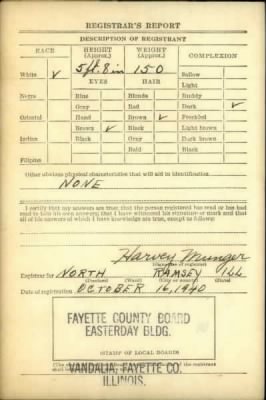 REGISTRAR'S REPORT
DESCRIPTION OF REGISTRANT
RACE HEIGHT (Approx.) WEIGHT (Approx.) COMPLEXION
White ✓ 5 ft. 8 in 150 Sallow
EYES HAIR Light
Negro Blue Blonde Ruddy
Gray Red Dark ✓
Oriental Hazel Brown ✓ Freckled
Brown ✓ Black Light brown
Indian Black Gray Dark brown
Bald Black
Filipino
Other obvious physical characteristics that will aid in identification
NONE
I certify that my answers are true; that the person registered has read or has had
read to him his own answers; that I have witnessed his signature or mark and that
all of his answers of which I have knowledge are true, except as follows:
Harvey Munger
(Signature of registrar)
Registrar for NORTH RAMSEY ILL
(Precinct) (Ward) (City or county) (State)
Date of registration OCTOBER 16, 1940
FAYETTE COUNTY BOARD
EASTERDAY BLDG.
(STAMP OF LOCAL BOARD)
the registrant
VANDALIA, FAYETTE CO.
ILLINOIS.